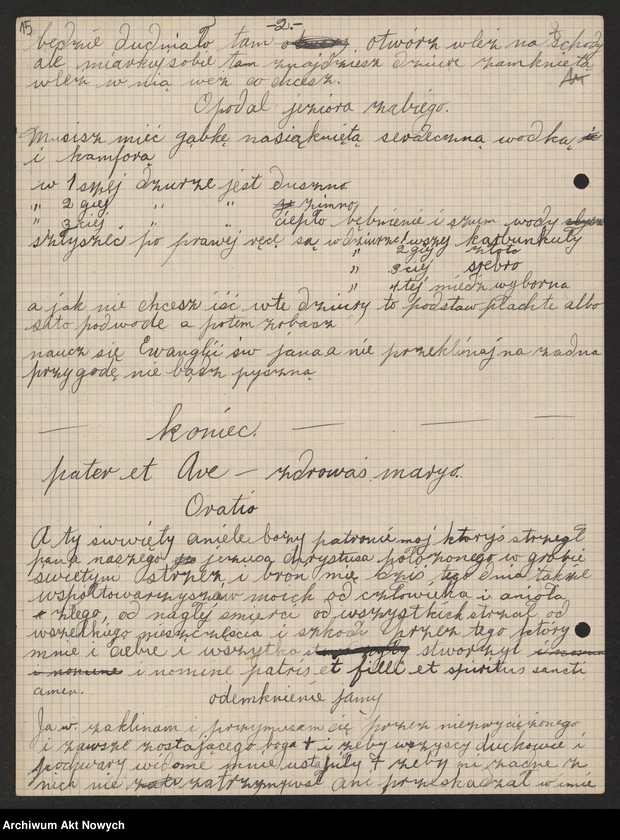 15
-2.-
będzie dudniało tam otwórz wleź na schody
ale miarkuj sobie tam znajdziesz dziure zamknięta
wlez w nią wez co chcesz.
Opodal jeziora żabiego.
Musisz mieć gąbkę nasiąkniętą serdeczną wodką
i kamforą
w 1szej dziurze jest duszno
" 2giej " " zimno
" 3ciej " " ciepło bębnienie i szum wody
szłyszeć po prawej ręcę są w dziurze 1wszej karbunkuły
" 2giej złoto
" 3ciej srebro
" 4tej miedź wyborna
a jak nie chcesz iść w te dziury to podstaw płachte albo
sito pod wode a potem zobasz
naucz się Ewanglii św jana a nie przeklinaj na zadna
przygodę nie bąsz pyszną
koniec.
pater et Ave – zdrowaś maryo.
Oratio
A ty świwięty aniele bozy patronie moj ktoryś strzegł
pana naszego jezusa chrystusa położonego w grobie
swiętym strzez i broń mię dziś tego dnia także
wspołtowarzyszów moich od człowieka i anioła
złego, od nagłej smierci od wszystkich strzał od
wszelkiego nieszczęscia i szkodi przez tego który
mnie i ciebie i wszytko stworzył
i nomine patris et filli et spiritus sancti
amen.
odemknienie jamy
Ja w. zaklinam i przymusam cię przez niezwyciężonego
i zawsze zostającego boga † i zeby wszyscy duchowie i
poczwary widome mnie ustąpuły † zeby mi zadne z
nich nie zatrzymywał ani przeskadzał w imie
Archiwum Akt Nowych